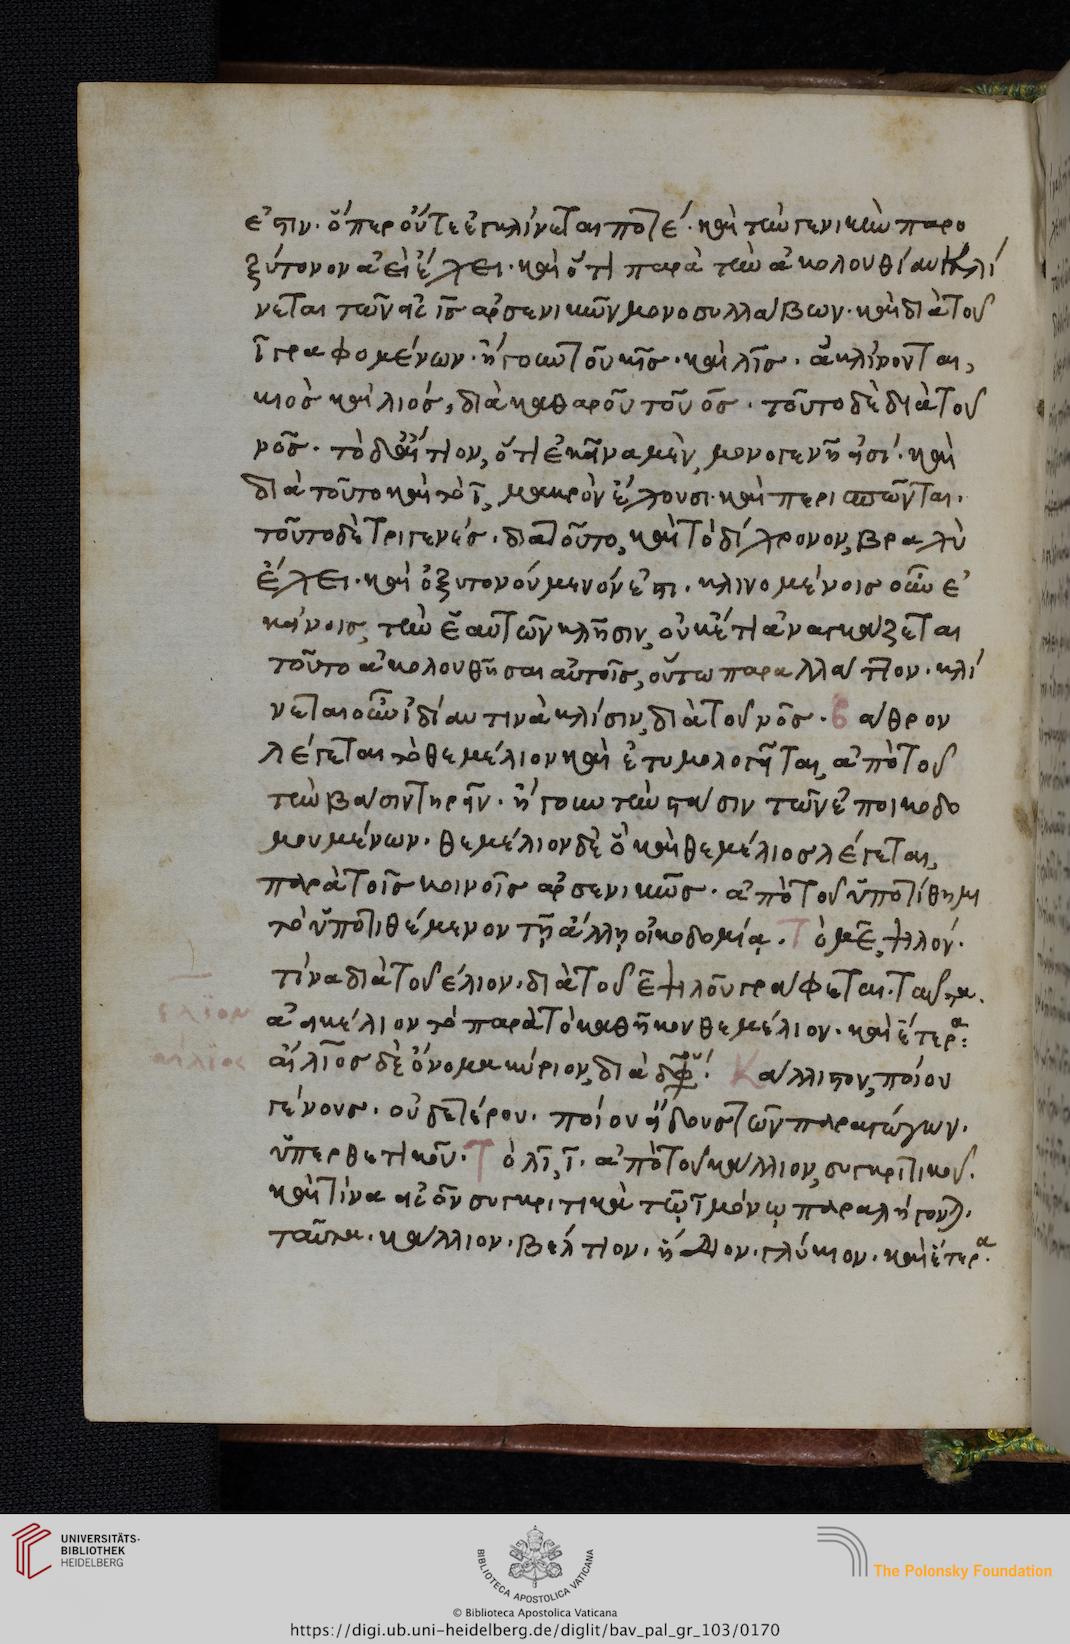 ἐστιν· ὅπερ οὔτε ἐγκλίνεται ποτέ· καὶ τὴν γενικὴν παρο
ξύτονον ἀεὶ ἔχει· καὶ ὅτι παρὰ τὴν ἀκολουθίαν κλί
νεται τῶν εἰς ῑς ἀρσενικῶν μονοσυλλάβων· καὶ διὰ τοῦ
ῑ γραφομένων· ἤγουν τοῦ κῖς· καὶ λῖς· ἃ κλίνονται,
κιὸς καὶ λιός, διὰ καθαροῦ τοῦ ος· τοῦτο δὲ διὰ τοῦ
νος· τὸ δ' αἴτιον, ὅτι ἐκεῖνα μὲν, μονογενῆ εἰσί· καὶ
διὰ τοῦτο καὶ τὸ ῑ, μακρὸν ἔχουσι· καὶ περισπῶνται·
τοῦτο δὲ τριγενές· διὰ τοῦτο, καὶ τὸ δίχρονον, βραχὺ
ἔχει· καὶ ὀξυτονούμενόν ἐστι· κλινομένοις οὖν ἐ
κείνοις, τὴν ἑαυτῶν κλῆσιν, οὐκέτι ἀναγκάζεται
τοῦτο ἀκολουθῆσαι αὐτοῖς, οὕτω παραλλάττον· κλί
νεται οὖν ἰδίαν τινὰ κλίσιν, διὰ τοῦ νος· βάθρον
λέγεται τὸ θεμέλιον καὶ ἐτυμολογεῖται, ἀπὸ τοῦ
τὴν βάσιν τηρεῖν· ἤγουν τὴν στάσιν τῶν ἐποικοδο
μουμένων· θεμέλιον δὲ ὃ καὶ θεμέλιος λέγεται,
παρὰ τοῖς κοινοῖς ἀρσενικῶς· ἀπὸ τοῦ ὑποτίθημι
τὸ ὑποτιθέμενον τῇ ἄλλῃ οἰκοδομίᾳ· Τὸ με, ψιλόν·
τίνα διὰ τοῦ έλιον· διὰ τοῦ ε ψιλοῦ γράφεται· ταῦτα·
εἰκέλιον τὸ παρὰ τὸ καθῆκον θεμέλιον· καὶ ἕτερα:
έλϊον
αἴλιος δὲ ὄνομα κύριον, διὰ διφθ· Κάλλιστον, ποίου
αιλϊος
γένους· οὐδετέρου· ποίου εἴδους τῶν παραγώγων·
ὑπερθετικοῦ· Τὸ λι, ῑ· ἀπὸ τοῦ κάλλιον, συγκριτικοῦ·
καὶ τίνα εἰς ον συγκριτικὰ τῷ ῑ μόνῳ παραλήγονται·
ταῦτα· κάλλιον· βέλτιον· ἥδιον· γλύκιον· καὶ ἕτερα·
UNIVERSITÄTS-
BIBLIOTHEK
HEIDELBERG
BIBLIOTECA APOSTOLICA VATICANA
The Polonsky Foundation
© Biblioteca Apostolica Vaticana
https://digi.ub.uni-heidelberg.de/diglit/bav_pal_gr_103/0170